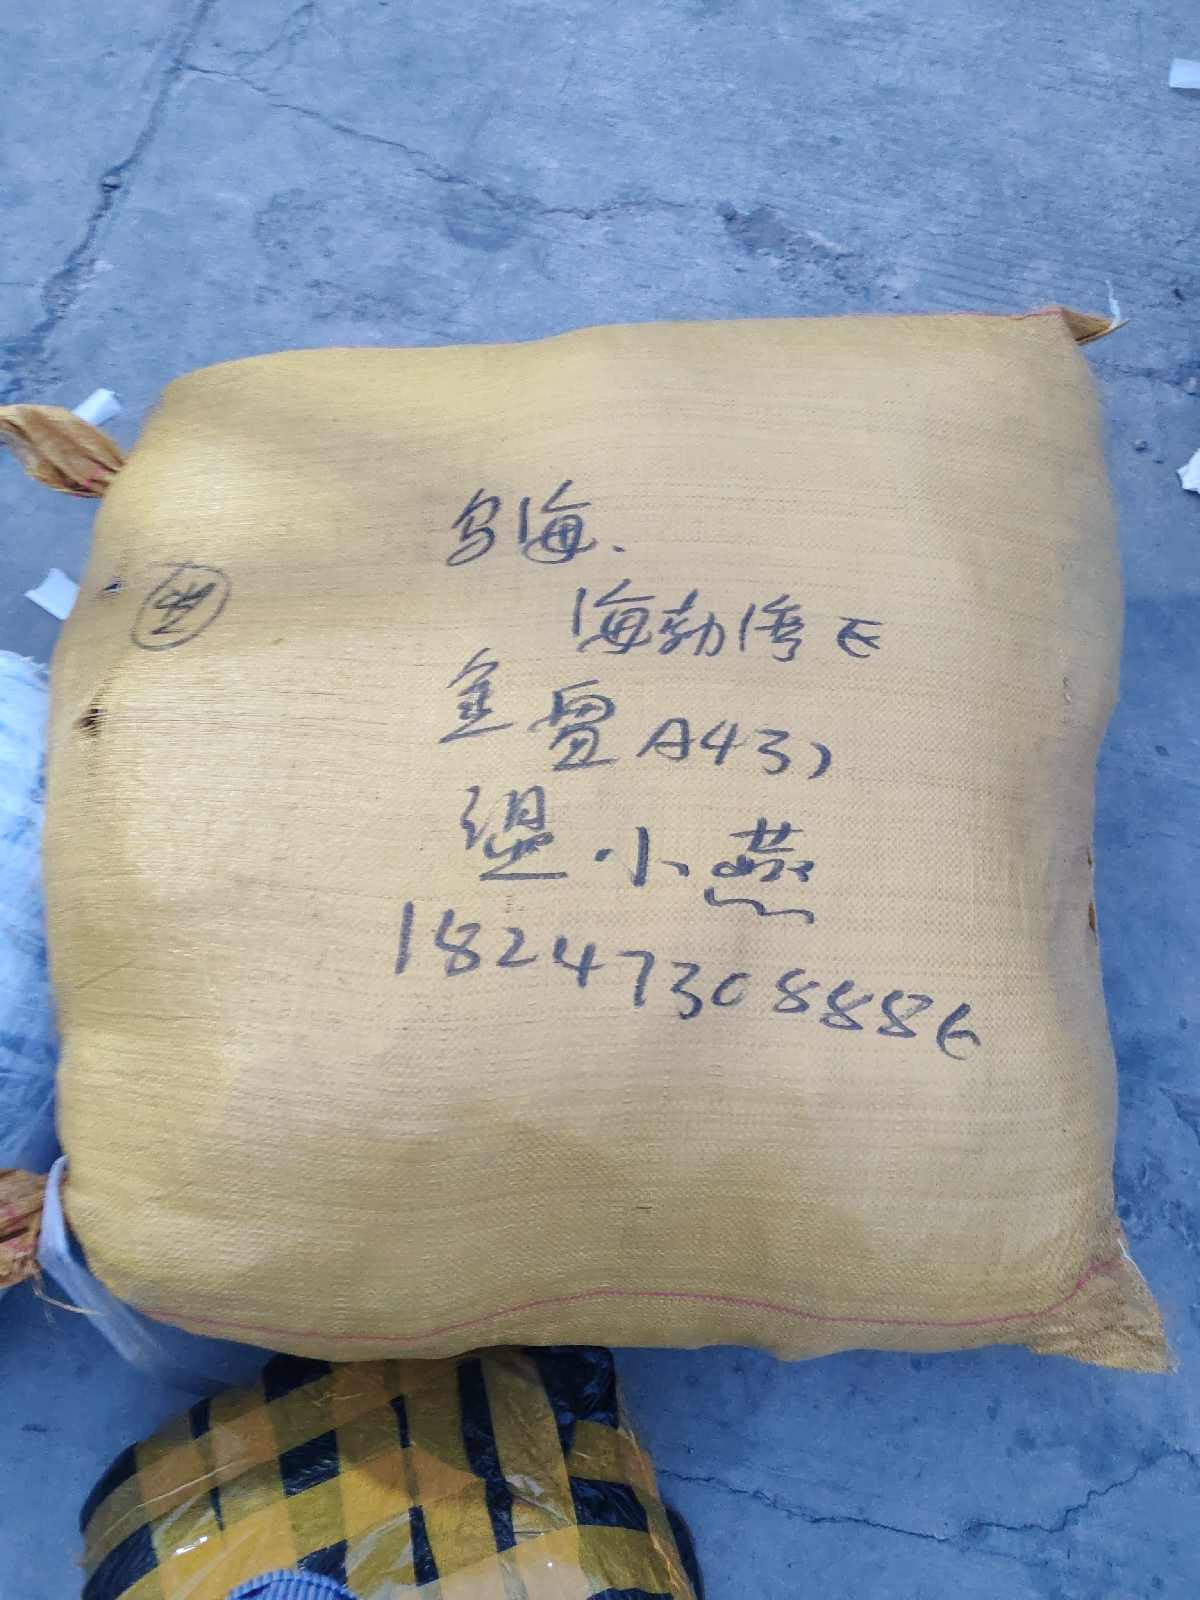 乌海.
海勃湾区
金置A43)
温小燕
18247308886